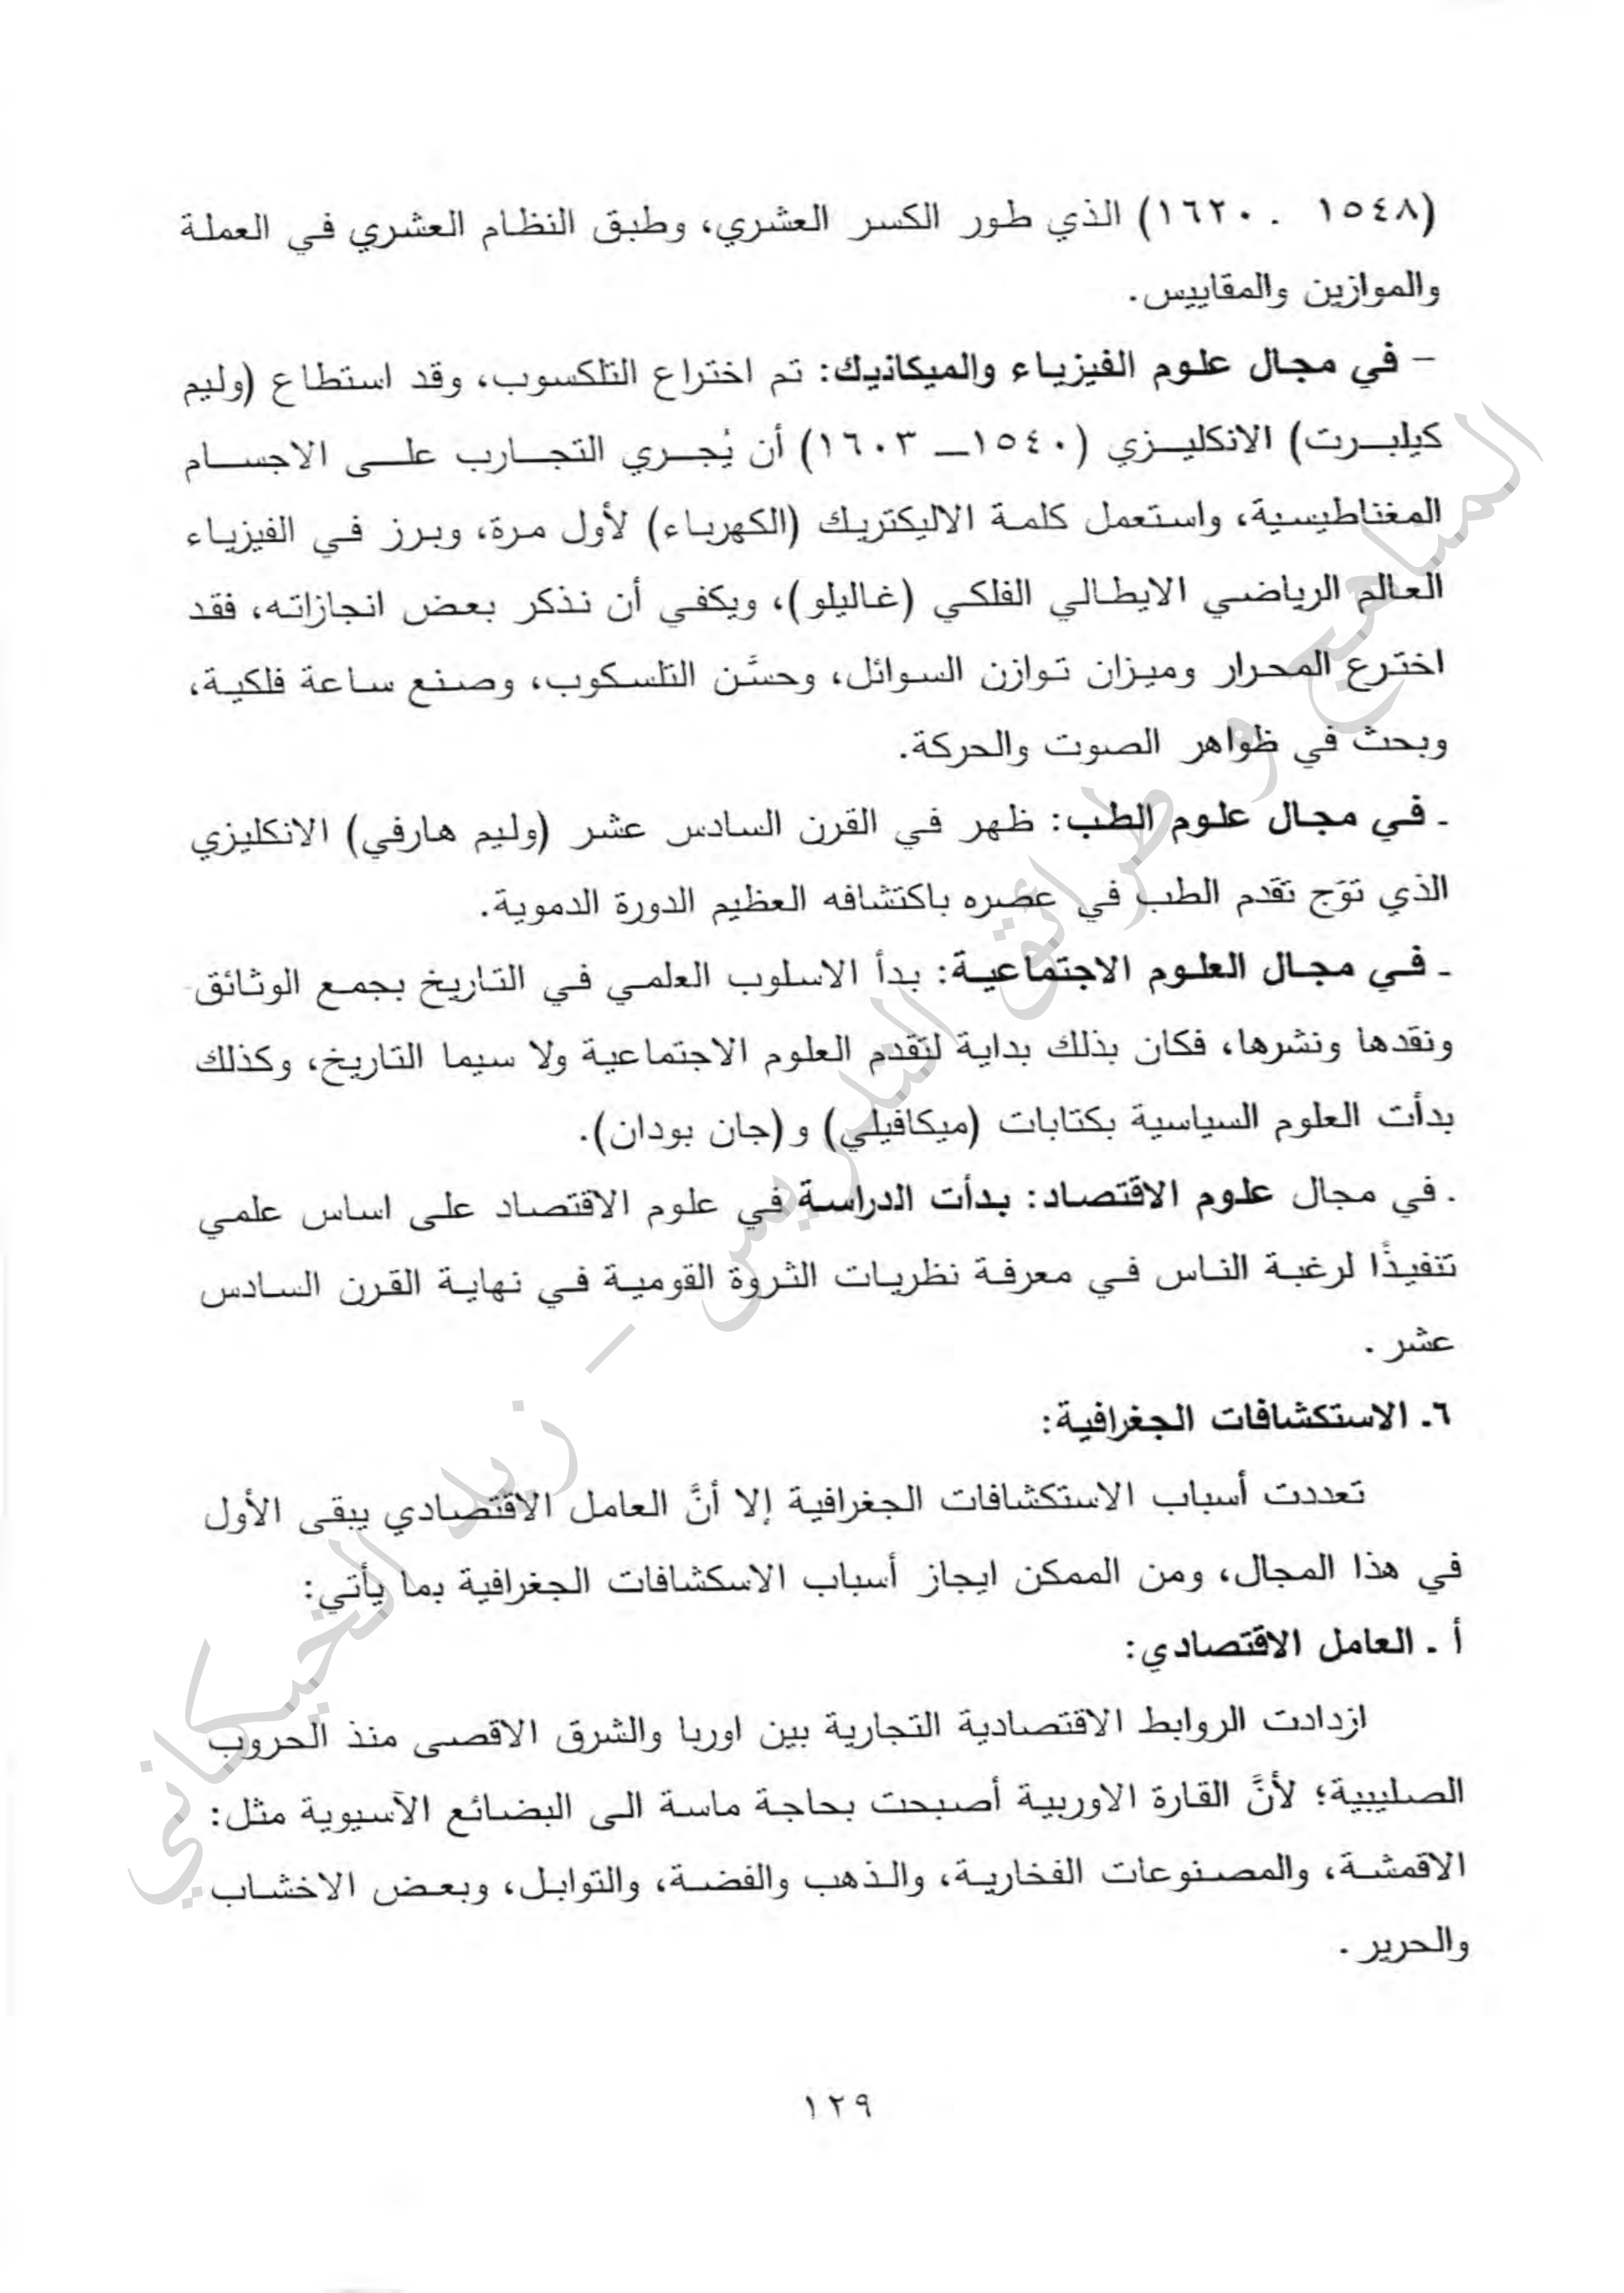 (١٥٤٨ . ١٦٢٠) الذي طور الكسر العشري، وطبق النظام العشري في العملة
والموازين والمقاييس.
– في مجال علوم الفيزياء والميكانيك: تم اختراع التلكسوب، وقد استطاع (وليم
كيلبرت) الانكليزي (١٥٤٠ــ ١٦٠٣) أن يُجري التجارب على الاجسام
المغناطيسية، واستعمل كلمة الاليكتريك (الكهرباء) لأول مرة، وبرز في الفيزياء
العالم الرياضي الايطالي الفلكي (غاليلو)، ويكفي أن نذكر بعض انجازاته، فقد
اخترع المحرار وميزان توازن السوائل، وحسَّن التلسكوب، وصنع ساعة فلكية،
وبحث في ظواهر الصوت والحركة.
ـ في مجال علوم الطب: ظهر في القرن السادس عشر (وليم هارفي) الانكليزي
الذي توّج تقدم الطب في عصره باكتشافه العظيم الدورة الدموية.
ـ في مجال العلوم الاجتماعية: بدأ الاسلوب العلمي في التاريخ بجمع الوثائق
ونقدها ونشرها، فكان بذلك بداية لتقدم العلوم الاجتماعية ولا سيما التاريخ، وكذلك
بدأت العلوم السياسية بكتابات (ميكافيلي) و(جان بودان).
. في مجال علوم الاقتصاد: بدأت الدراسة في علوم الاقتصاد على اساس علمي
تنفيذًا لرغبة الناس في معرفة نظريات الثروة القومية في نهاية القرن السادس
عشر .
٦ـ الاستكشافات الجغرافية:
تعددت أسباب الاستكشافات الجغرافية إلا أنَّ العامل الاقتصادي يبقى الأول
في هذا المجال، ومن الممكن ايجاز أسباب الاسكشافات الجغرافية بما يأتي:
أ ـ العامل الاقتصادي:
ازدادت الروابط الاقتصادية التجارية بين اوربا والشرق الاقصى منذ الحروب
الصليبية؛ لأنَّ القارة الاوربية أصبحت بحاجة ماسة الى البضائع الآسيوية مثل:
الاقمشة، والمصنوعات الفخارية، والذهب والفضة، والتوابل، وبعض الاخشاب
والحرير .
١٢٩
المناهج و طرائق التدريس – زيد الخيكاني